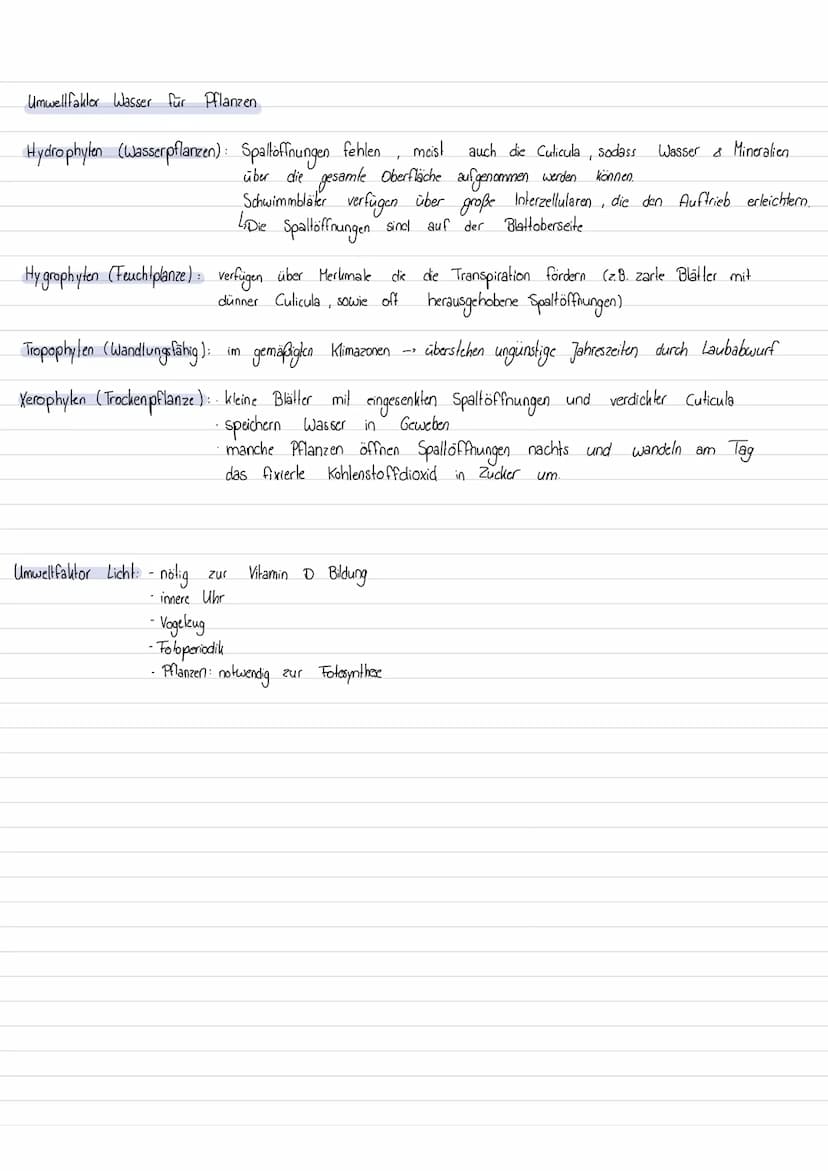 Umweltfaktor Wasser für Pflanzen
Hydrophyten (Wasserpflanzen): Spaltöffnungen fehlen, meist auch die Cuticula, sodass Wasser & Mineralien
über die gesamte Oberfläche aufgenommen werden können.
Schwimmbläter verfügen über große Interzellularen, die den Auftrieb erleichtern.
↳Die Spaltöffnungen sind auf der Blattoberseite
Hygrophyten (Feuchtplanze): verfügen über Merkmale die die Transpiration fördern (z.B. zarte Blätter mit
dünner Cuticula, sowie oft herausgehobene Spaltöffnungen)
Tropophyten (Wandlungsfähig): im gemäßigten Klimazonen → überstehen ungünstige Jahreszeiten durch Laubabwurf
Xerophyten (Trockenpflanze): · kleine Blätter mit eingesenkten Spaltöffnungen und verdichter Cuticula
· speichern Wasser in Geweben
· manche Pflanzen öffnen Spaltöffnungen nachts und wandeln am Tag
das fixierte Kohlenstoffdioxid in Zucker um.
Umweltfaktor Licht: - nötig zur Vitamin D Bildung
- innere Uhr
- Vogelzug
- Fotoperiodik
- Pflanzen: notwendig zur Fotosynthese